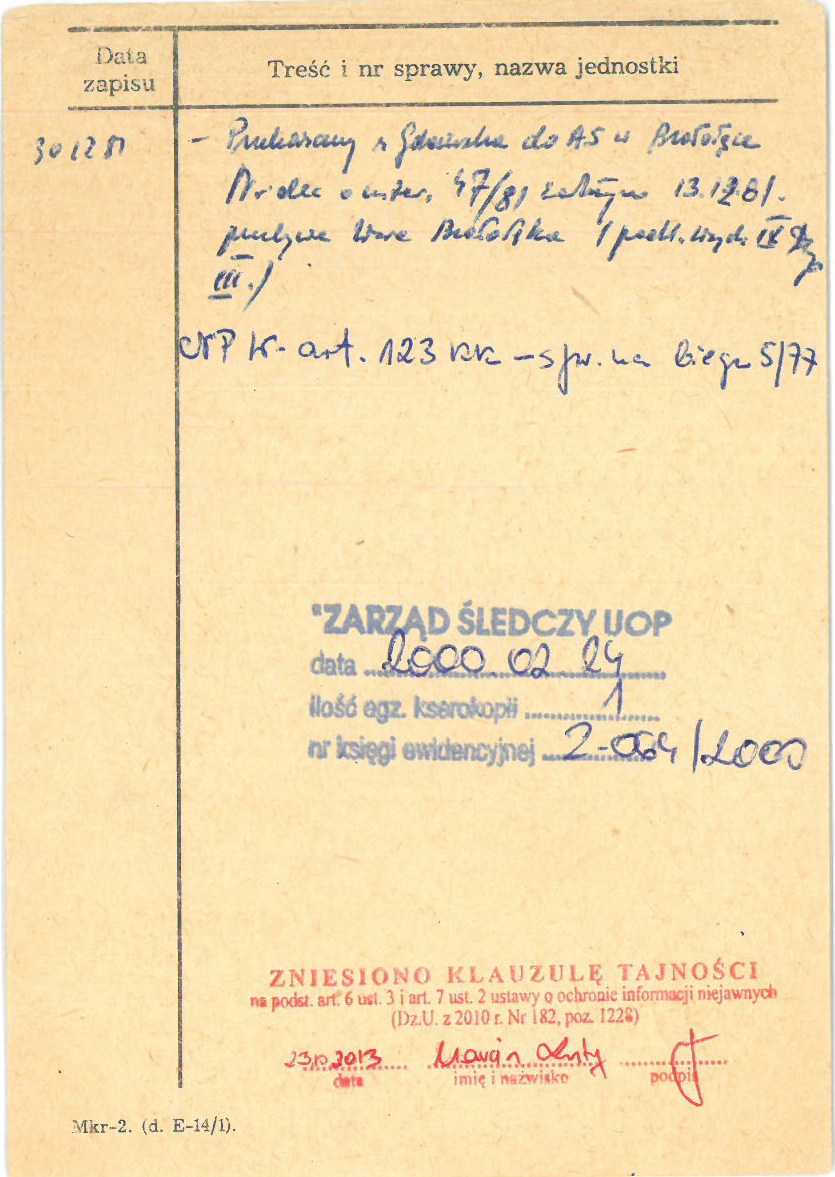 Data
zapisu
Treść i nr sprawy, nazwa jednostki
30 12 81
- Przekazany z Gdańska do AŚ w Białołęce
Nr dec o inter. 47/81 z dnia 13.12.81.
Białołęka
III./
art. 123 KK - spr. na biegu 5/77
"ZARZĄD ŚLEDCZY UOP
data 2000.02.24
ilość egz. kserokopii 1
nr księgi ewidencyjnej 2-064/2000
ZNIESIONO KLAUZULĘ TAJNOŚCI
na podst. art. 6 ust. 3 i art. 7 ust. 2 ustawy o ochronie informacji niejawnych
(Dz.U. z 2010 r. Nr 182, poz. 1228)
23.10.2013 Marcin
data imię i nazwisko podpis
Mkr-2. (d. E-14/1).